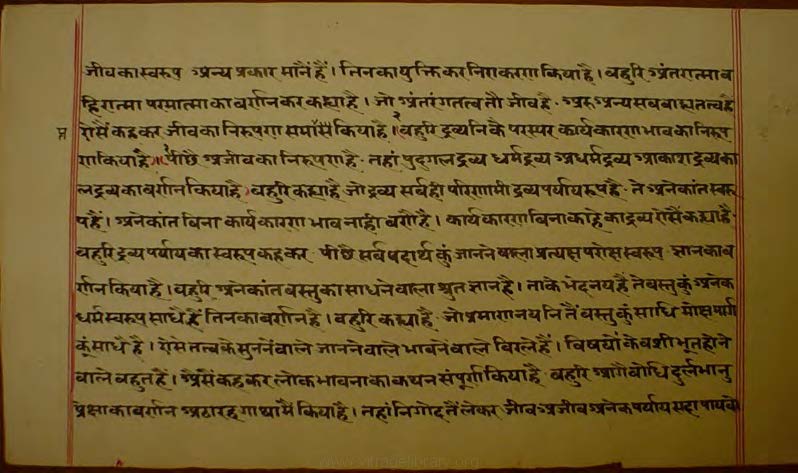 जीव का स्वरूप अन्य प्रकार मानैं हैं। तिनका युक्ति कर निराकरण किया है। बहुरि अंतरात्मा ब
हिरात्मा परमात्मा का बर्णन कर कह्या है। जो अंतरंगतत्व तौ जीव है। अरु अन्य सब बाह्यतत्व हैं
ऐसैं कहकर जीव का निरूपण समाप्त किया है। बहुरि द्रव्यनिकै परस्पर कार्य कारण भाव का निरूप
ण किया है॥ पीछै अजीव का निरूपण है। तहां पुद्गलद्रव्य धर्मद्रव्य अधर्मद्रव्य आकाशद्रव्य का
लद्रव्य का बर्णन किया है। बहुरि कह्या है जो द्रव्य सर्व ही परिणामी द्रव्य पर्यायरूप है। ते अनेकांत स्वरू
प हैं। अनेकांत बिना कार्य कारण भाव नाही बणै है। कार्य कारण बिना काहे का द्रव्य ऐसैं कह्या है।
बहुरि द्रव्य पर्याय का स्वरूप कहकर पीछै सर्व पदार्थ कुं जानने वाला प्रत्यक्ष परोक्ष स्वरूप ज्ञान का ब
र्णन किया है। बहुरि अनेकांत बस्तु का साधने वाला श्रुत ज्ञान है। ताके भेद नय हैं ते बस्तु कुं अनेक
धर्म स्वरूप साधे हैं तिनका बर्णन है। बहुरि कह्या है जो प्रमाण नयनि तैं बस्तु कुं साधि मोक्षमार्ग
कूं साधै है। ऐसे तत्व के सुनने वाले जानने वाले भावने वाले बिरले हैं। विषयों के वशीभूत होने
वाले बहुत हैं। ऐसैं कहकर लोक भावना का कथन संपूर्ण किया है। बहुरि आगे बोधि दुर्लभानु
प्रेक्षा का बर्णन अठारह गाथा मैं किया है। तहां निगोद तैं लेकर जीव अजीव अनेक पर्याय सदा पायबो